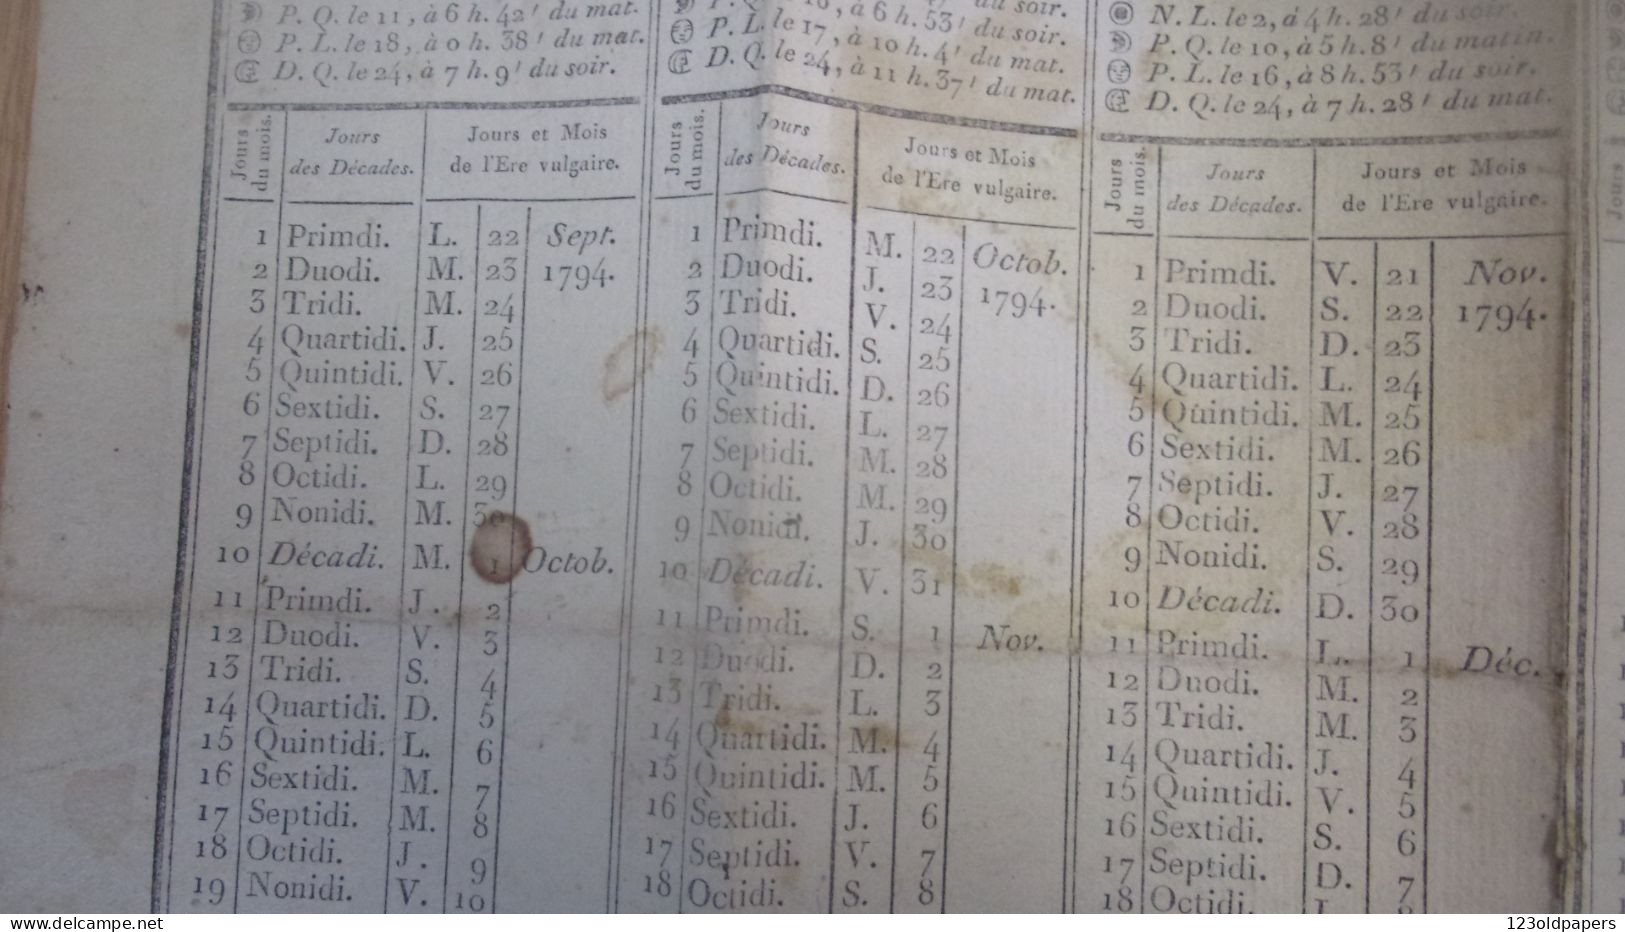 P. Q. le 11, à 6 h. 42' du mat.
P. L. le 18, à 0 h. 38' du mat.
D. Q. le 24, à 7 h. 9' du soir.
Jours du mois.
Jours des Décades.
Jours et Mois de l'Ere vulgaire.
1 Primdi. L. 22 Sept.
2 Duodi. M. 23 1794.
3 Tridi. M. 24
4 Quartidi. J. 25
5 Quintidi. V. 26
6 Sextidi. S. 27
7 Septidi. D. 28
8 Octidi. L. 29
9 Nonidi. M. 30
10 Décadi. M. 1 Octob.
11 Primdi. J. 2
12 Duodi. V. 3
13 Tridi. S. 4
14 Quartidi. D. 5
15 Quintidi. L. 6
16 Sextidi. M. 7
17 Septidi. M. 8
18 Octidi. J. 9
19 Nonidi. V. 10
à 6 h. 53' du soir.
P. L. le 17, à 10 h. 4' du mat.
D. Q. le 24, à 11 h. 37' du mat.
Jours du mois.
Jours des Décades.
Jours et Mois de l'Ere vulgaire.
1 Primdi. M. 22 Octob.
2 Duodi. J. 23 1794.
3 Tridi. V. 24
4 Quartidi. S. 25
5 Quintidi. D. 26
6 Sextidi. L. 27
7 Septidi. M. 28
8 Octidi. M. 29
9 Nonidi. J. 30
10 Décadi. V. 31
11 Primdi. S. 1 Nov.
12 Duodi. D. 2
13 Tridi. L. 3
14 Quartidi. M. 4
15 Quintidi. M. 5
16 Sextidi. J. 6
17 Septidi. V. 7
18 Octidi. S. 8
N. L. le 2, à 4 h. 28' du soir.
P. Q. le 10, à 5 h. 8' du matin.
P. L. le 16, à 8 h. 53' du soir.
D. Q. le 24, à 7 h. 28' du mat.
Jours du mois.
Jours des Décades.
Jours et Mois de l'Ere vulgaire.
1 Primdi. V. 21 Nov.
2 Duodi. S. 22 1794.
3 Tridi. D. 23
4 Quartidi. L. 24
5 Quintidi. M. 25
6 Sextidi. M. 26
7 Septidi. J. 27
8 Octidi. V. 28
9 Nonidi. S. 29
10 Décadi. D. 30
11 Primdi. L. 1 Déc.
12 Duodi. M. 2
13 Tridi. M. 3
14 Quartidi. J. 4
15 Quintidi. V. 5
16 Sextidi. S. 6
17 Septidi. D. 7
18 Octidi.
Jours
delcampe.net
123oldpapers